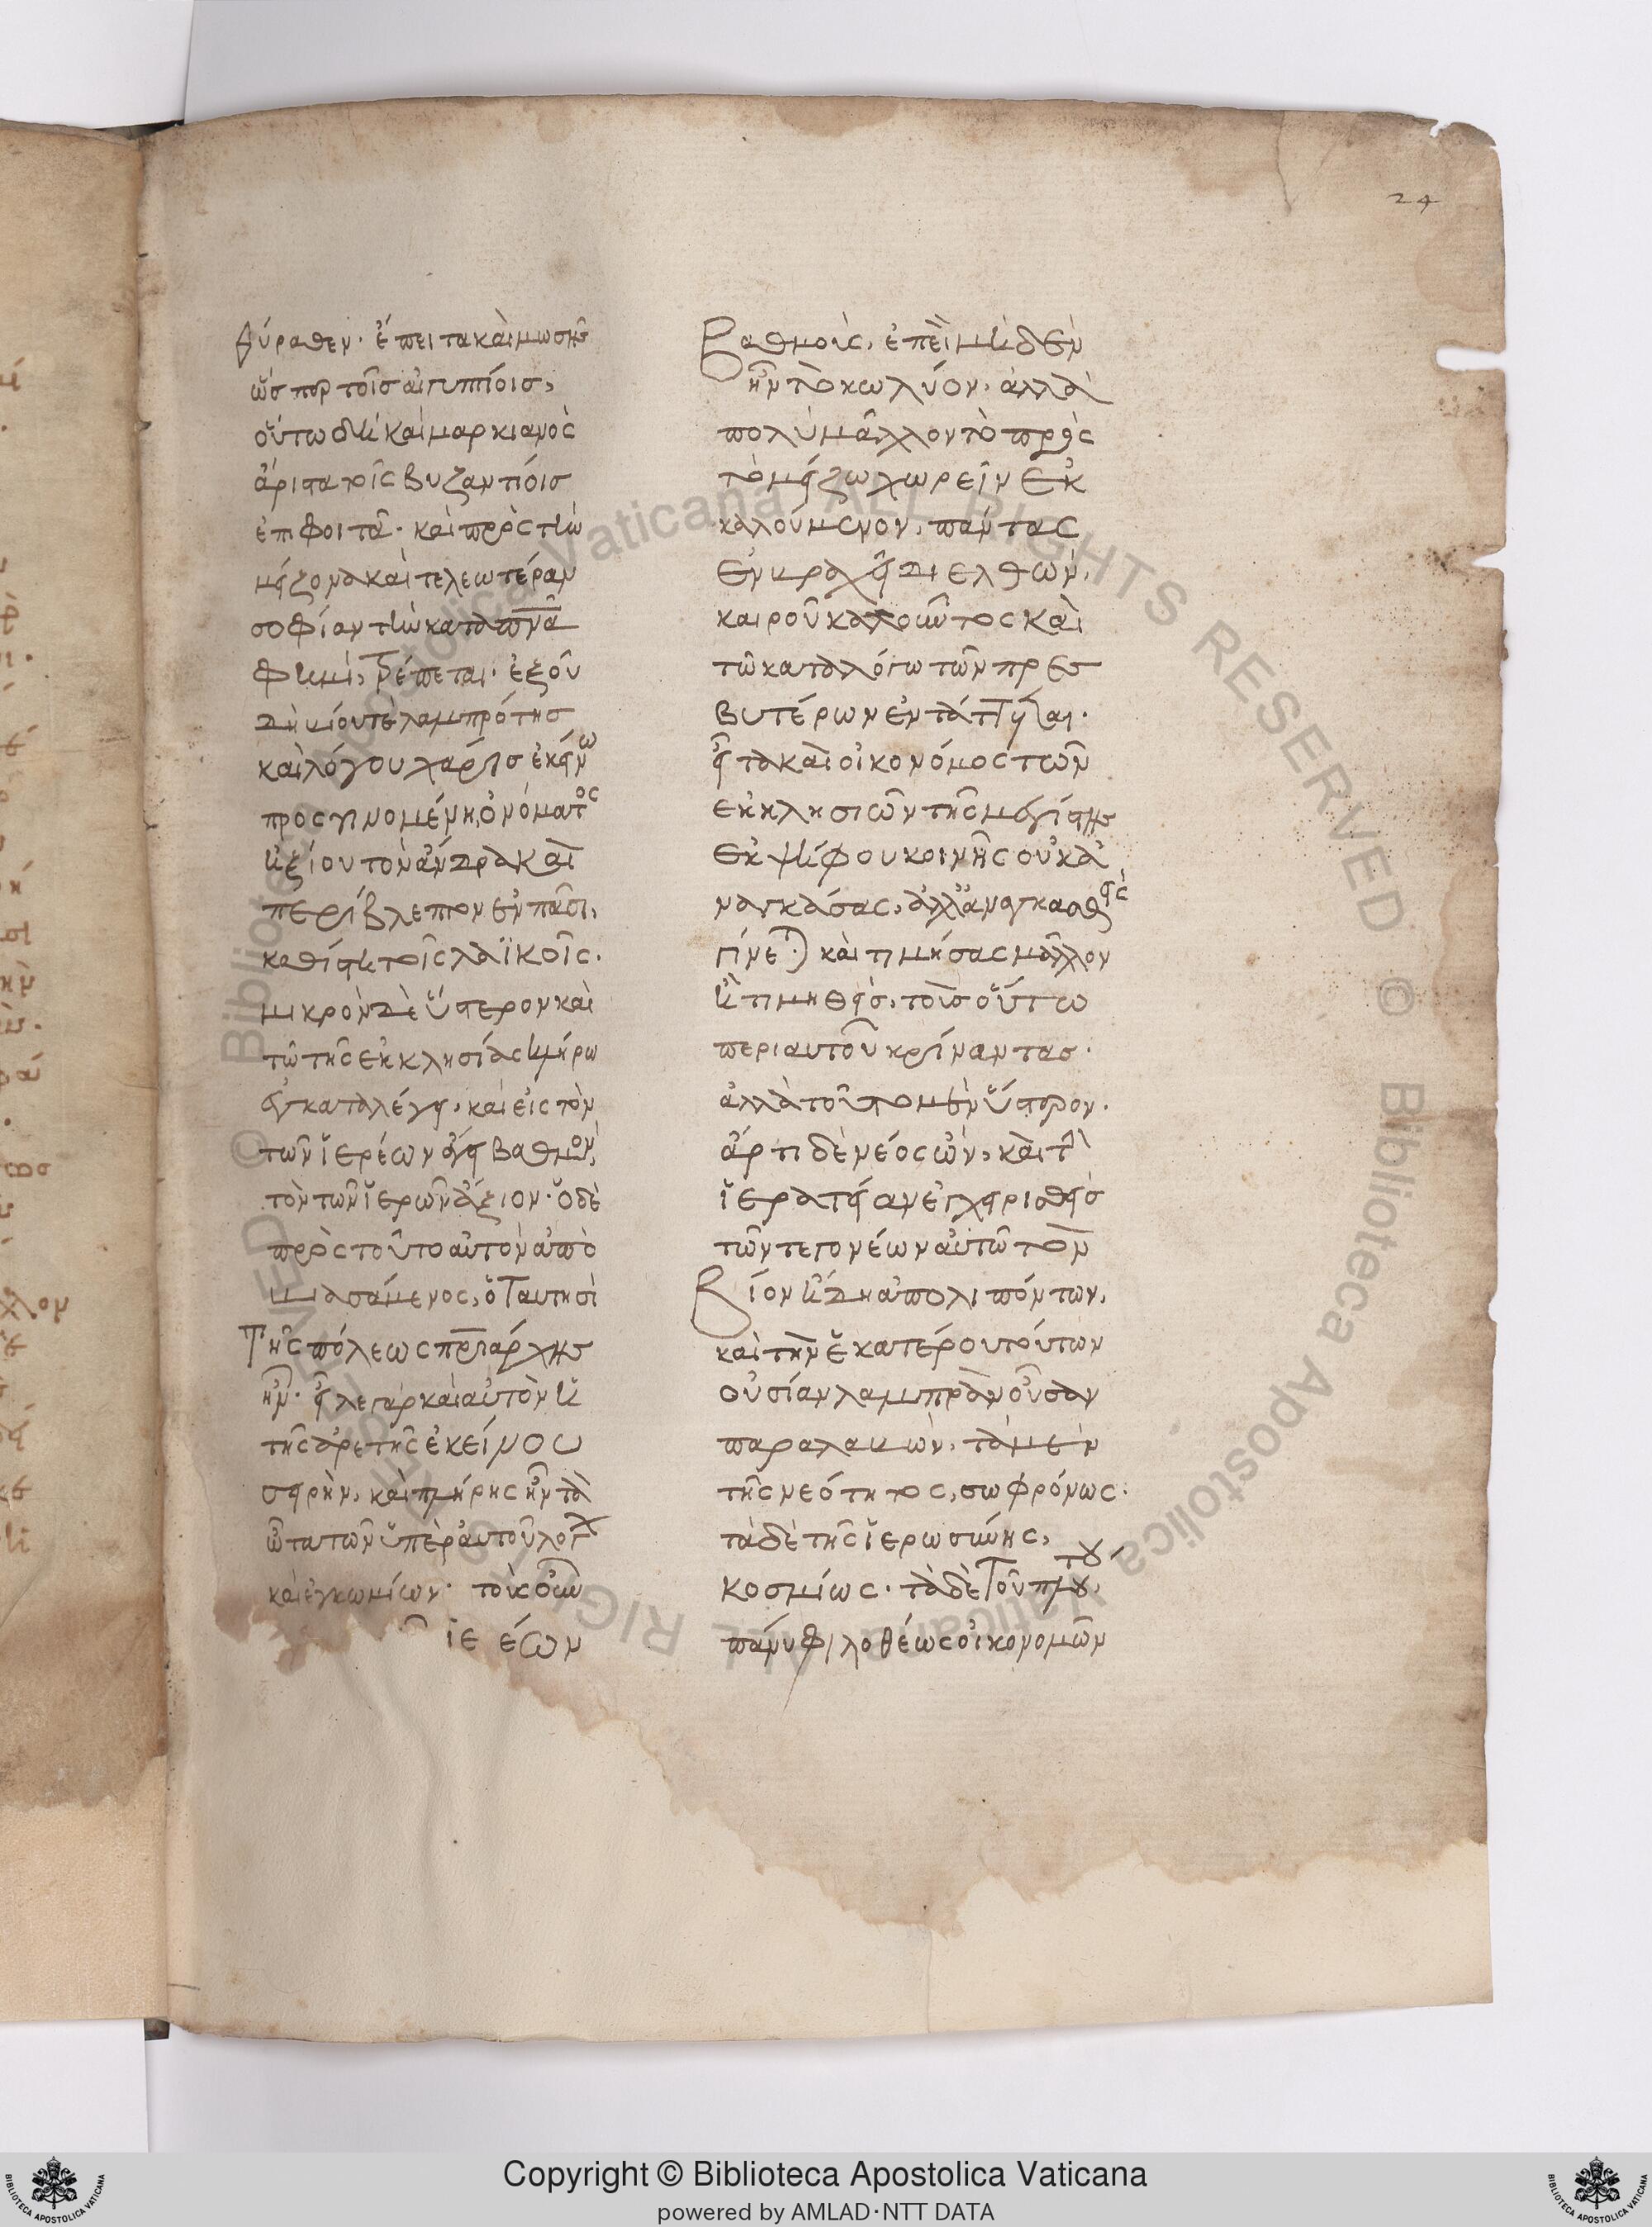 24
θύραθεν· ἔπειτα καὶ μωσῆς
ὥσπερ τοῖς αἰγυπτίοις,
οὕτω δὴ καὶ μαρκιανὸς
ἄριστα τοῖς βυζαντίοις
ἐπιφοιτᾶ· καὶ πρὸς τὴν
μείζονα καὶ τελεωτέραν
σοφίαν τὴν κατὰ πνᾶ
φημὶ, τρέπεται· ἐξ οὗ
δὴ βίου τε λαμπρότης
καὶ λόγου χάρις ἐκείνω
προσγινομένη, ὀνόματος
ἄξιον τὸν ἄνδρα καὶ
περίβλεπτον ἐν πᾶσι,
καθίστη τοῖς λαϊκοῖς.
μικρὸν δὲ ὕστερον καὶ
τῶ τῆς ἐκκλησίας κλήρω
ἐγκαταλέγει, καὶ εἰς τὸν
τῶν ἱερέων ἄγει βαθμὸν,
τὸν τῶν ἱερῶν ἄξιον· ὁ δὲ
πρὸς τοῦτο αὐτὸν ἀπο
βιβασάμενος, ὁ ταυτησὶ
τῆς πόλεως πριάρχης
ἦν· εἷλε γὰρ καὶ αὐτὸν ἡ
τῆς ἀρετῆς ἐκείνου
σειρὴν, καὶ πλήρης ἦν τὰ
ὦτα τῶν ὑπὲρ αὐτοῦ λόγ
καὶ ἐγκωμίων· τοῖς οὖν
ἱε έων
βαθμοῖς, ἐπεὶ μηδὲν
ἦν τὸ κωλύον, ἀλλὰ
πολὺ μᾶλλον τὸ πρὸς
τὸ μείζω χωρεῖν ἐκ
καλούμενον, πάντας
ἐν βραχεῖ διελθὼν,
καιροῦ καλοῦντος καὶ
τῶ καταλόγω τῶν πρεσ
βυτέρων ἐντάττεται.
εἶτα καὶ οἰκονόμος τῶν
ἐκκλησιῶν τῆς μεγίστης
ἐκ ψήφου κοινῆς οὐκ ἀ
ναγκάσας, ἀλλ' ἀναγκασθεὶς
γίνεται καὶ τιμήσας μᾶλλον
ἢ τιμηθεὶς, τοὺς οὕτω
περὶ αὐτοῦ κρίναντας.
ἀλλὰ τοῦτο μὲν ὕστερον.
ἄρτι δὲ νέος ὢν, καὶ τὴν
ἱερατείαν ἐγχειρισθεὶς
τῶν τε γονέων αὐτῶ τὸν
βίον ἤδη ἀπολιπόντων,
καὶ τὴν ἑκατέρου τούτων
οὐσίαν λαμπρὰν οὖσαν
παραλαβὼν, τὰ μὲν
τῆς νεότητος, σωφρόνως·
τὰ δὲ τῆς ἱερωσύνης,
κοσμίως· τὰ δὲ τοῦ πλούτου,
πάνυ φιλοθέως οἰκονομῶν
Copyright © Biblioteca Apostolica Vaticana
powered by AMLAD·NTT DATA